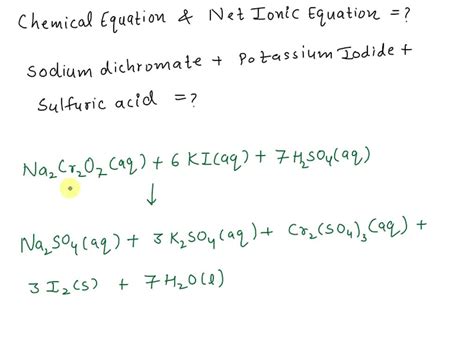 Chemical Equation & Net Ionic Equation = ?
Sodium dichromate + Potassium Iodide +
Sulfuric acid = ?
Na₂Cr₂O₇(aq) + 6 KI(aq) + 7H₂SO₄(aq)
↓
Na₂SO₄(aq) + 3 K₂SO₄(aq) + Cr₂(SO₄)₃(aq) +
3 I₂(s) + 7 H₂O(l)